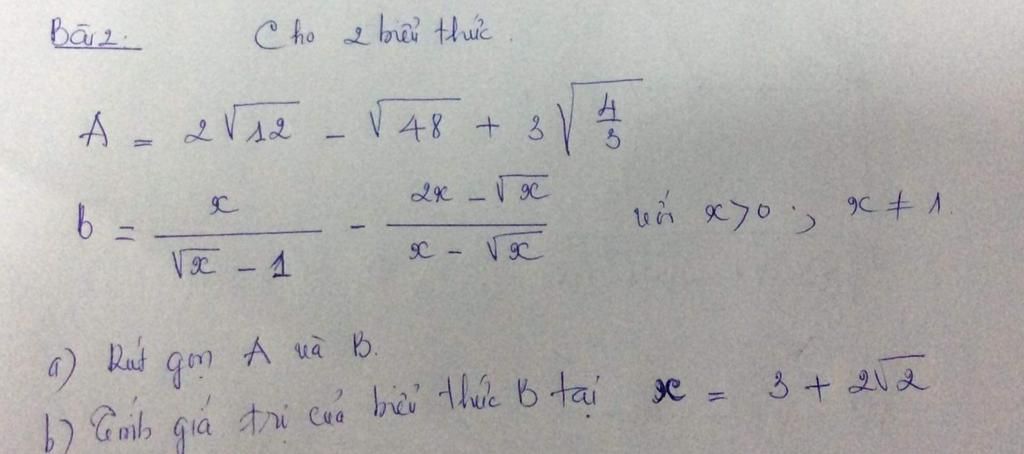 Bài 2. Cho 2 biểu thức.
A = 2√12 - √48 + 3√(4/3)
b = x/(√x - 1) - (2x - √x)/(x - √x) với x > 0 ; x ≠ 1.
a) Rút gọn A và B.
b) Tính giá trị của biểu thức B tại x = 3 + 2√2